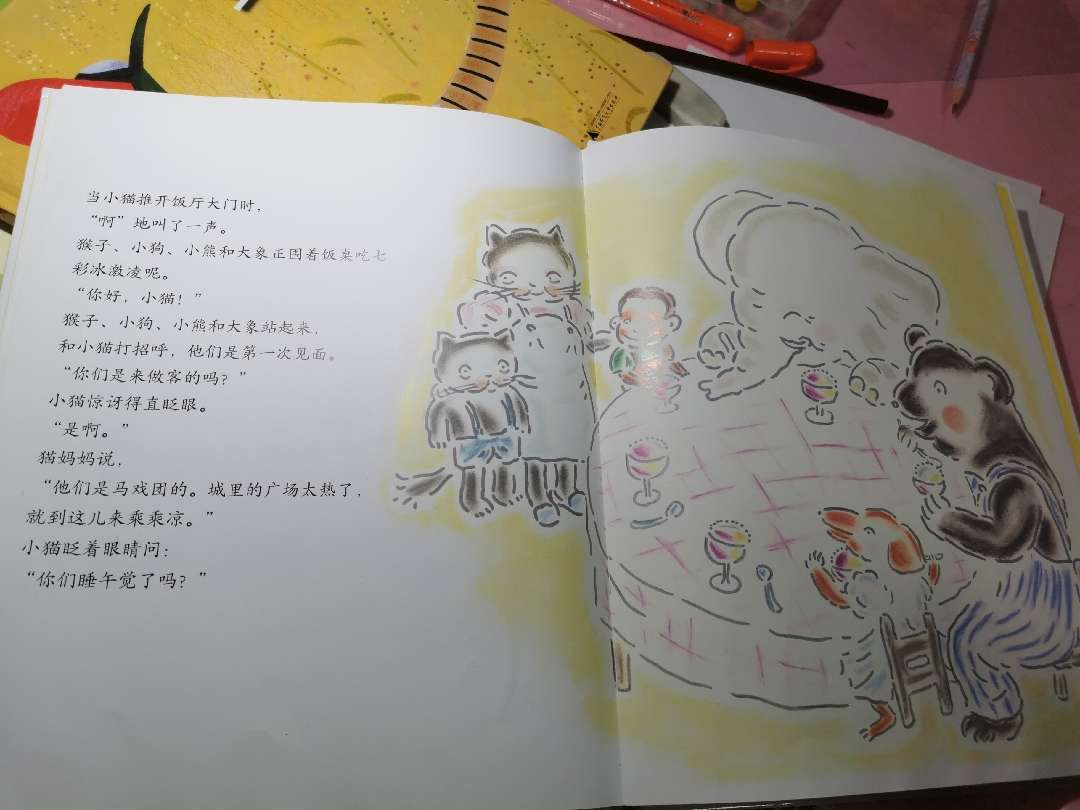 当小猫推开饭厅大门时，
“啊”地叫了一声。
猴子、小狗、小熊和大象正围着饭桌吃七
彩冰激凌呢。
“你好，小猫！”
猴子、小狗、小熊和大象站起来，
和小猫打招呼，他们是第一次见面。
“你们是来做客的吗？”
小猫惊讶得直眨眼。
“是啊。”
猫妈妈说，
“他们是马戏团的。城里的广场太热了，
就到这儿来乘乘凉。”
小猫眨着眼睛问：
“你们睡午觉了吗？”